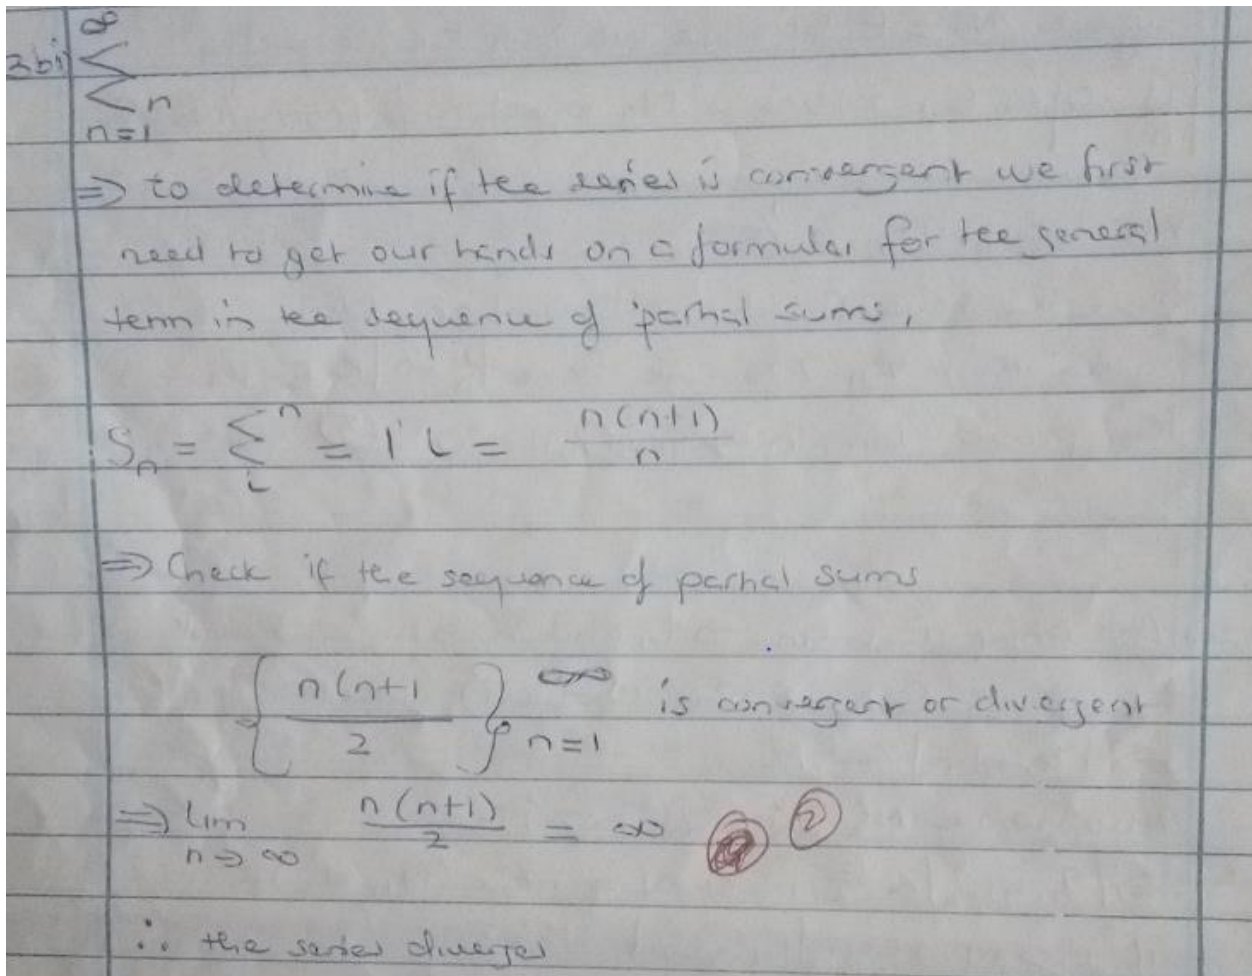 2bi)
∞
∑ n
n=1
⇒ to determine if tee series is convergent we first
need to get our hands on a formular for tee general
term in tee sequence of partial sums,
Sn = ∑ n = 1 i = n(n+1)
i n
⇒ Check if the sequence of partial sums
{ n(n+1 } ∞ is convergent or divergent
2 n=1
⇒ lim n(n+1) = ∞ 2
n→∞ 2
∴ the series diverges